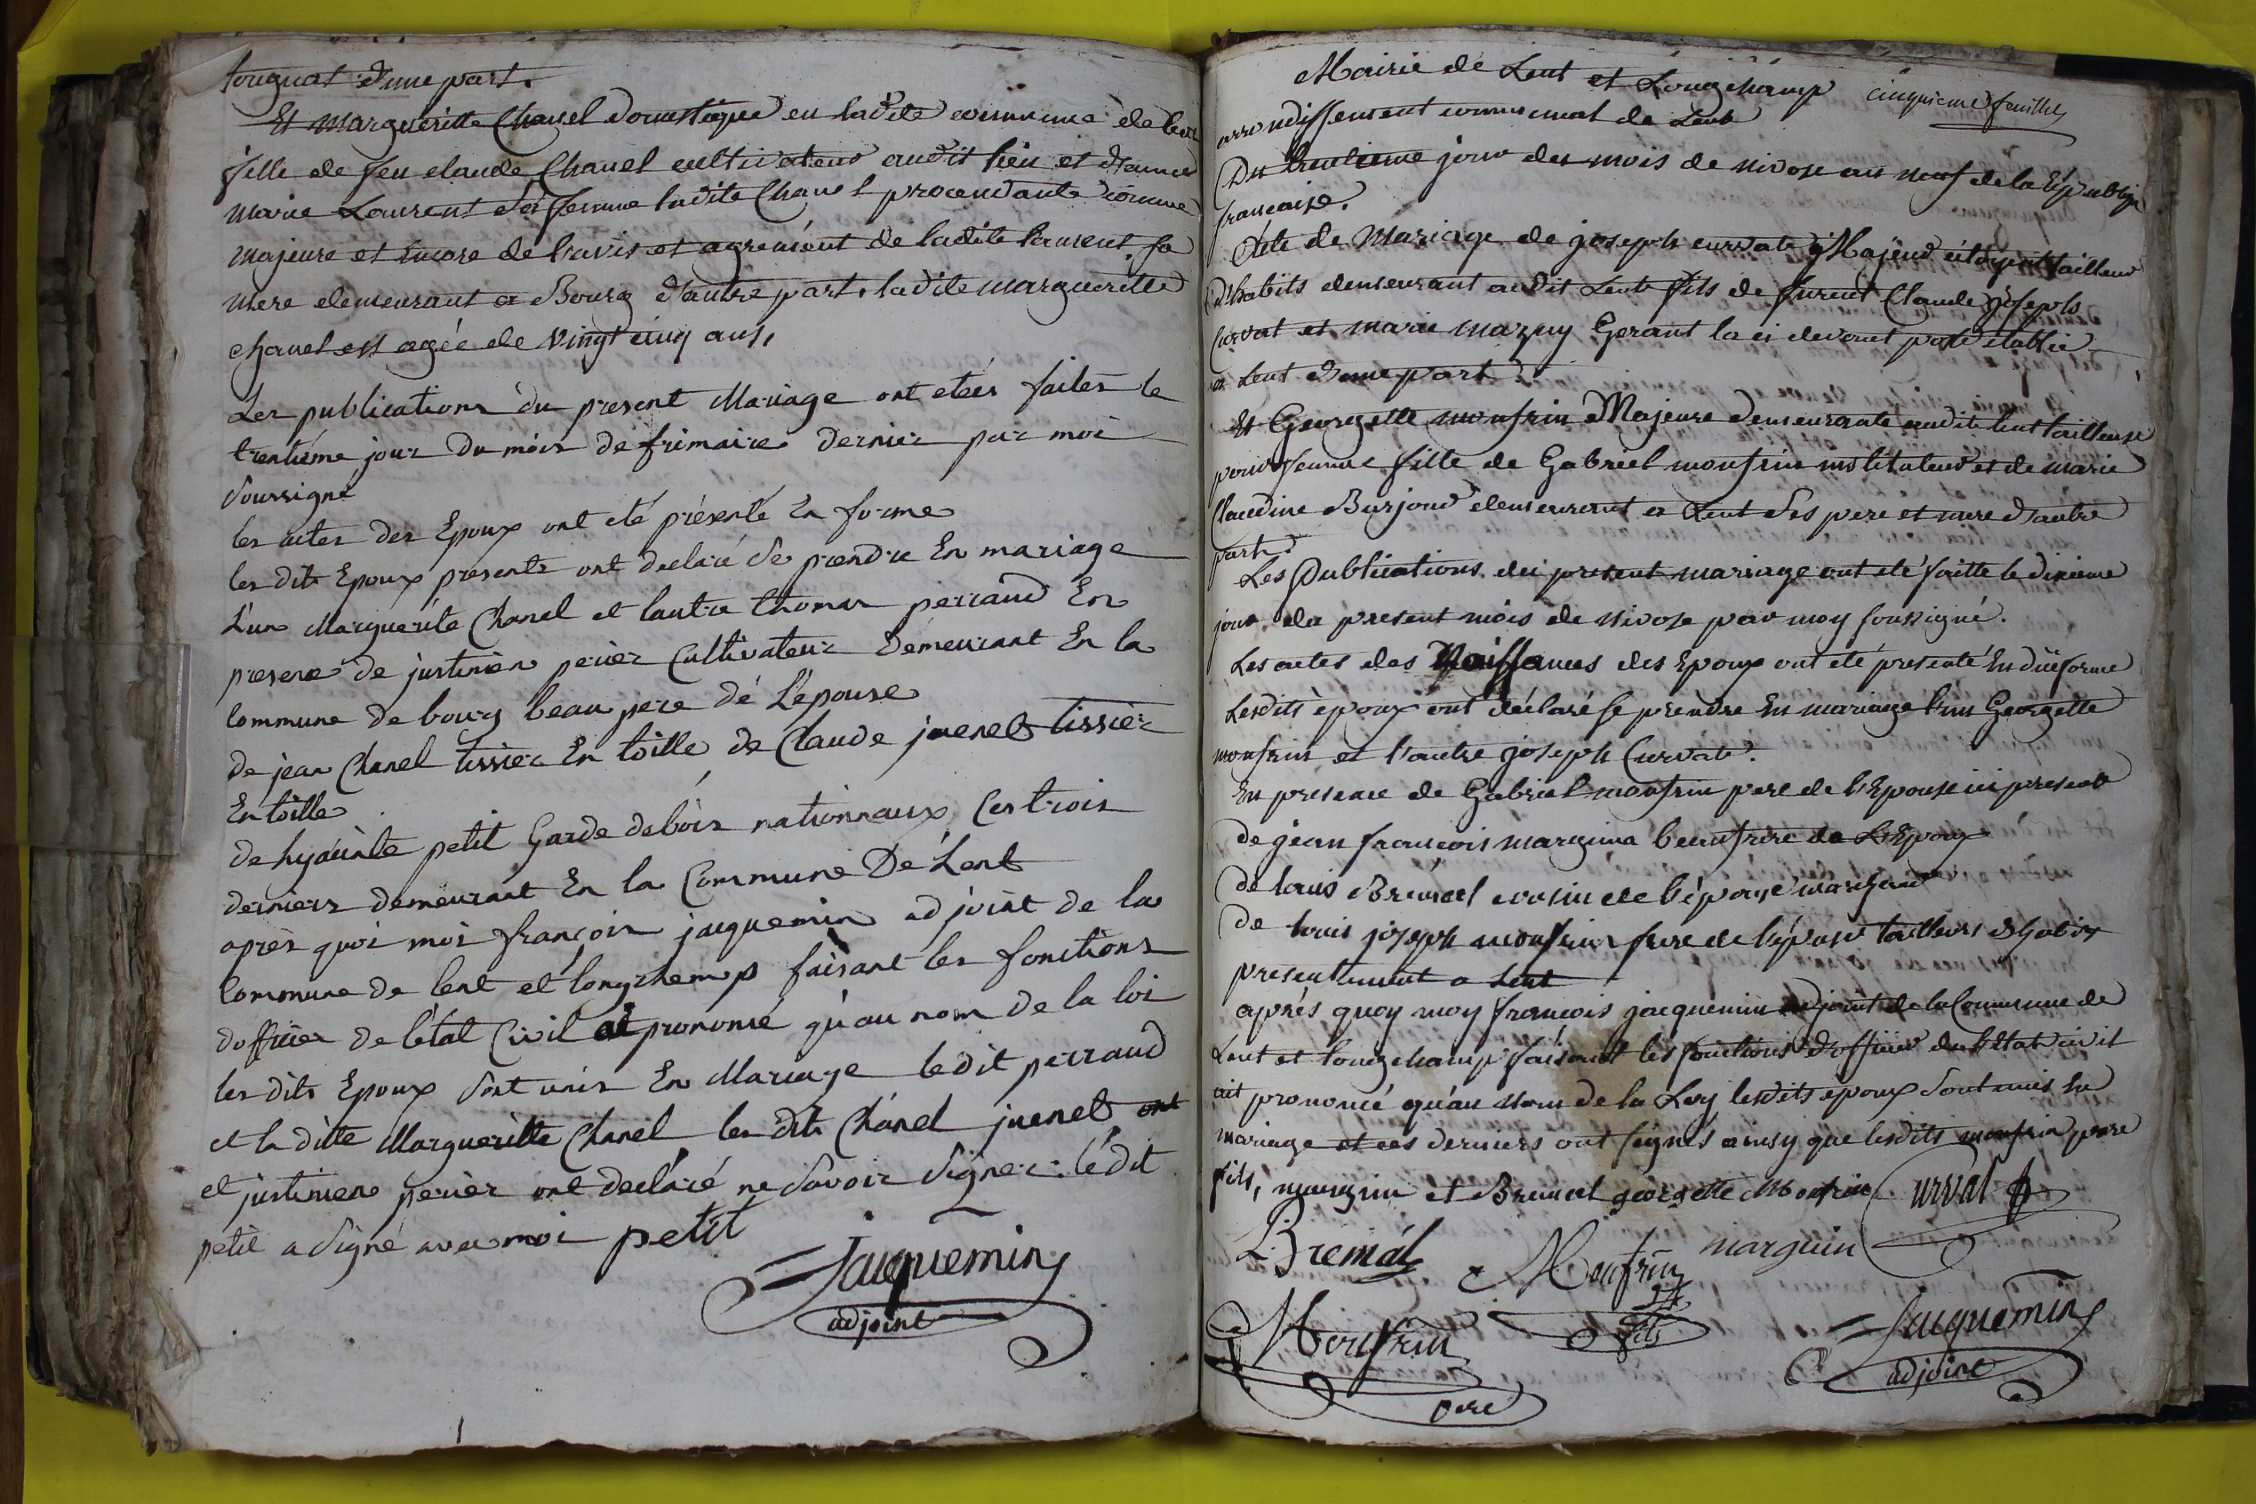 fougnat d'une part.
Et Margueritte Chanel domestique en ladite commune de lent
fille de feu claude Chanel cultivateur audit lieu et d'anne
marie Laurent sa femme ladite Chanel procendante comme
majeure et encore de l'avis et agrement de ladite laurent sa
mere demeurant a Bourg d'autre part, ladite marguerite
chanel est agée de vingt cinq ans,
Les publications du present Mariage ont etées faites le
trentiéme jour du mois de frimaire dernier par moi
soussigné
les actes des Epoux ont été présenté En forme
les dits Epoux presents ont declaré se prendre En mariage
L'un Marguerite Chanel et lautre thomas perraud En
presence de justinien perier Cultivateur Demeurant En la
Commune de bourg beau pere dé L'épouse
de jean Chanel tissier En toille de Claude juenet tissier
En toille
de hyacinte petit Garde debois nationnaux, Ces trois
derniers demeurant En la Commune De Lent
apres quoi moi françois jacquemin adjoint de la
Commune de lent et longchemp faisant les fonctions
dofficier de létat Civil ai prononcé qu'au nom de la loi
les dits Epoux sont unis En Mariage ledit perraud
et la ditte Marguerite Chanel les dits Chanel juenet ont
et justinien perier ont declaré ne savoir signer. lédit
petit a signé avec moi petit
Jacquemin
adjoint
Mairie de Lent et Longchamp
cinquieme feuillet
arrondissement communal de Lent
Du trentieme jour du mois de nivose an neuf de la république
française.
Acte de Mariage de joseph curvat Majeur citoyen tailleur
d'habits demeurant audit Lent fils de furent Claude joseph
Curvat et marie mazuy Gerant la ci devant poste établie
a Lent d'une part
Et Georgette monfrin Majeure demeurante audit lent tailleuse
pour femme fille de Gabriel monfrin instituteur et de marie
Claudine Burjoud demeurant a Lent ses pere et mere d'autre
part.
Les Publications du present mariage ont été faitte le dixieme
jour du present mois de Nivose par moy soussigné.
Les actes des Naissances des Epoux ont été presenté En düe forme
Lesdits époux ont déclaré se prendre En mariage l'un Georgette
monfrin et l'autre joseph Curvat.
En presence de Gabriel monfrin pere de l'Epouse ici present
de jean françois marguin beaufrere de L'Epoux
de louis Bremal cousin de l'épouse marchand
de louis joseph monfrin frere de l'épouse tailleurs d'habits
presentement a Lent
aprés quoy moy françois jacquemin adjoint de la Commune de
Lent et longchamp faisant les fonctions d'officier de l'Etat civil
ait prononcé qu'au nom de la Loy lesdits epoux sont unis En
mariage et ces derniers ont signés ainsy que lesdits monfrin pere
fils, marguin et Bremal georgette Monfrin Curvat
L Bremal Monfrin marguin
fils
Monfrin
pere
Jacquemin
adjoint